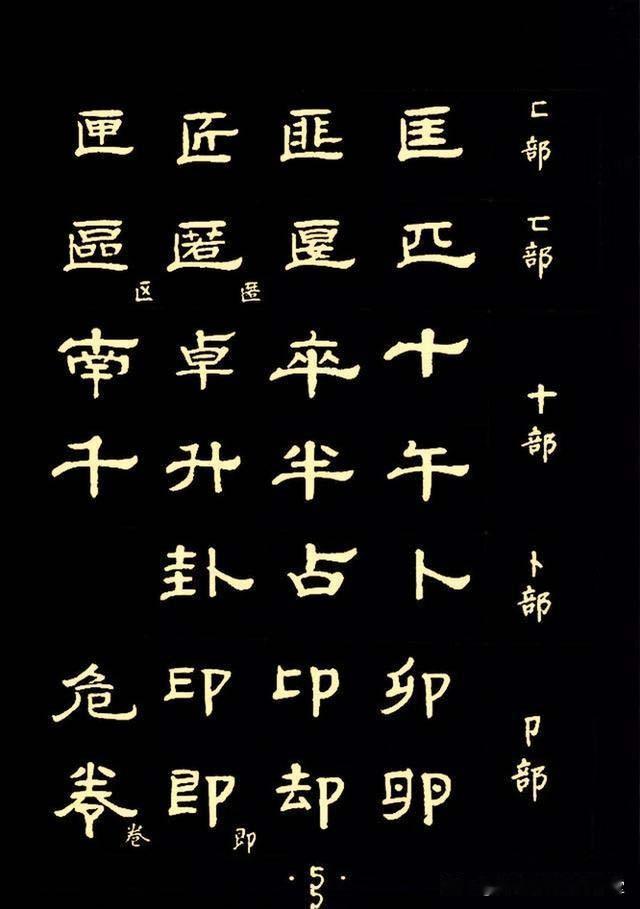 匚部 匡 匪 匠 匣
匸部 匹 匽 匿 匿 區 区
十部 十 卒 卓 南
午 半 升 千
卜部 卜 占 卦
卩部 卯 卬 印 危
卵 却 即 即 卷 卷
·55·